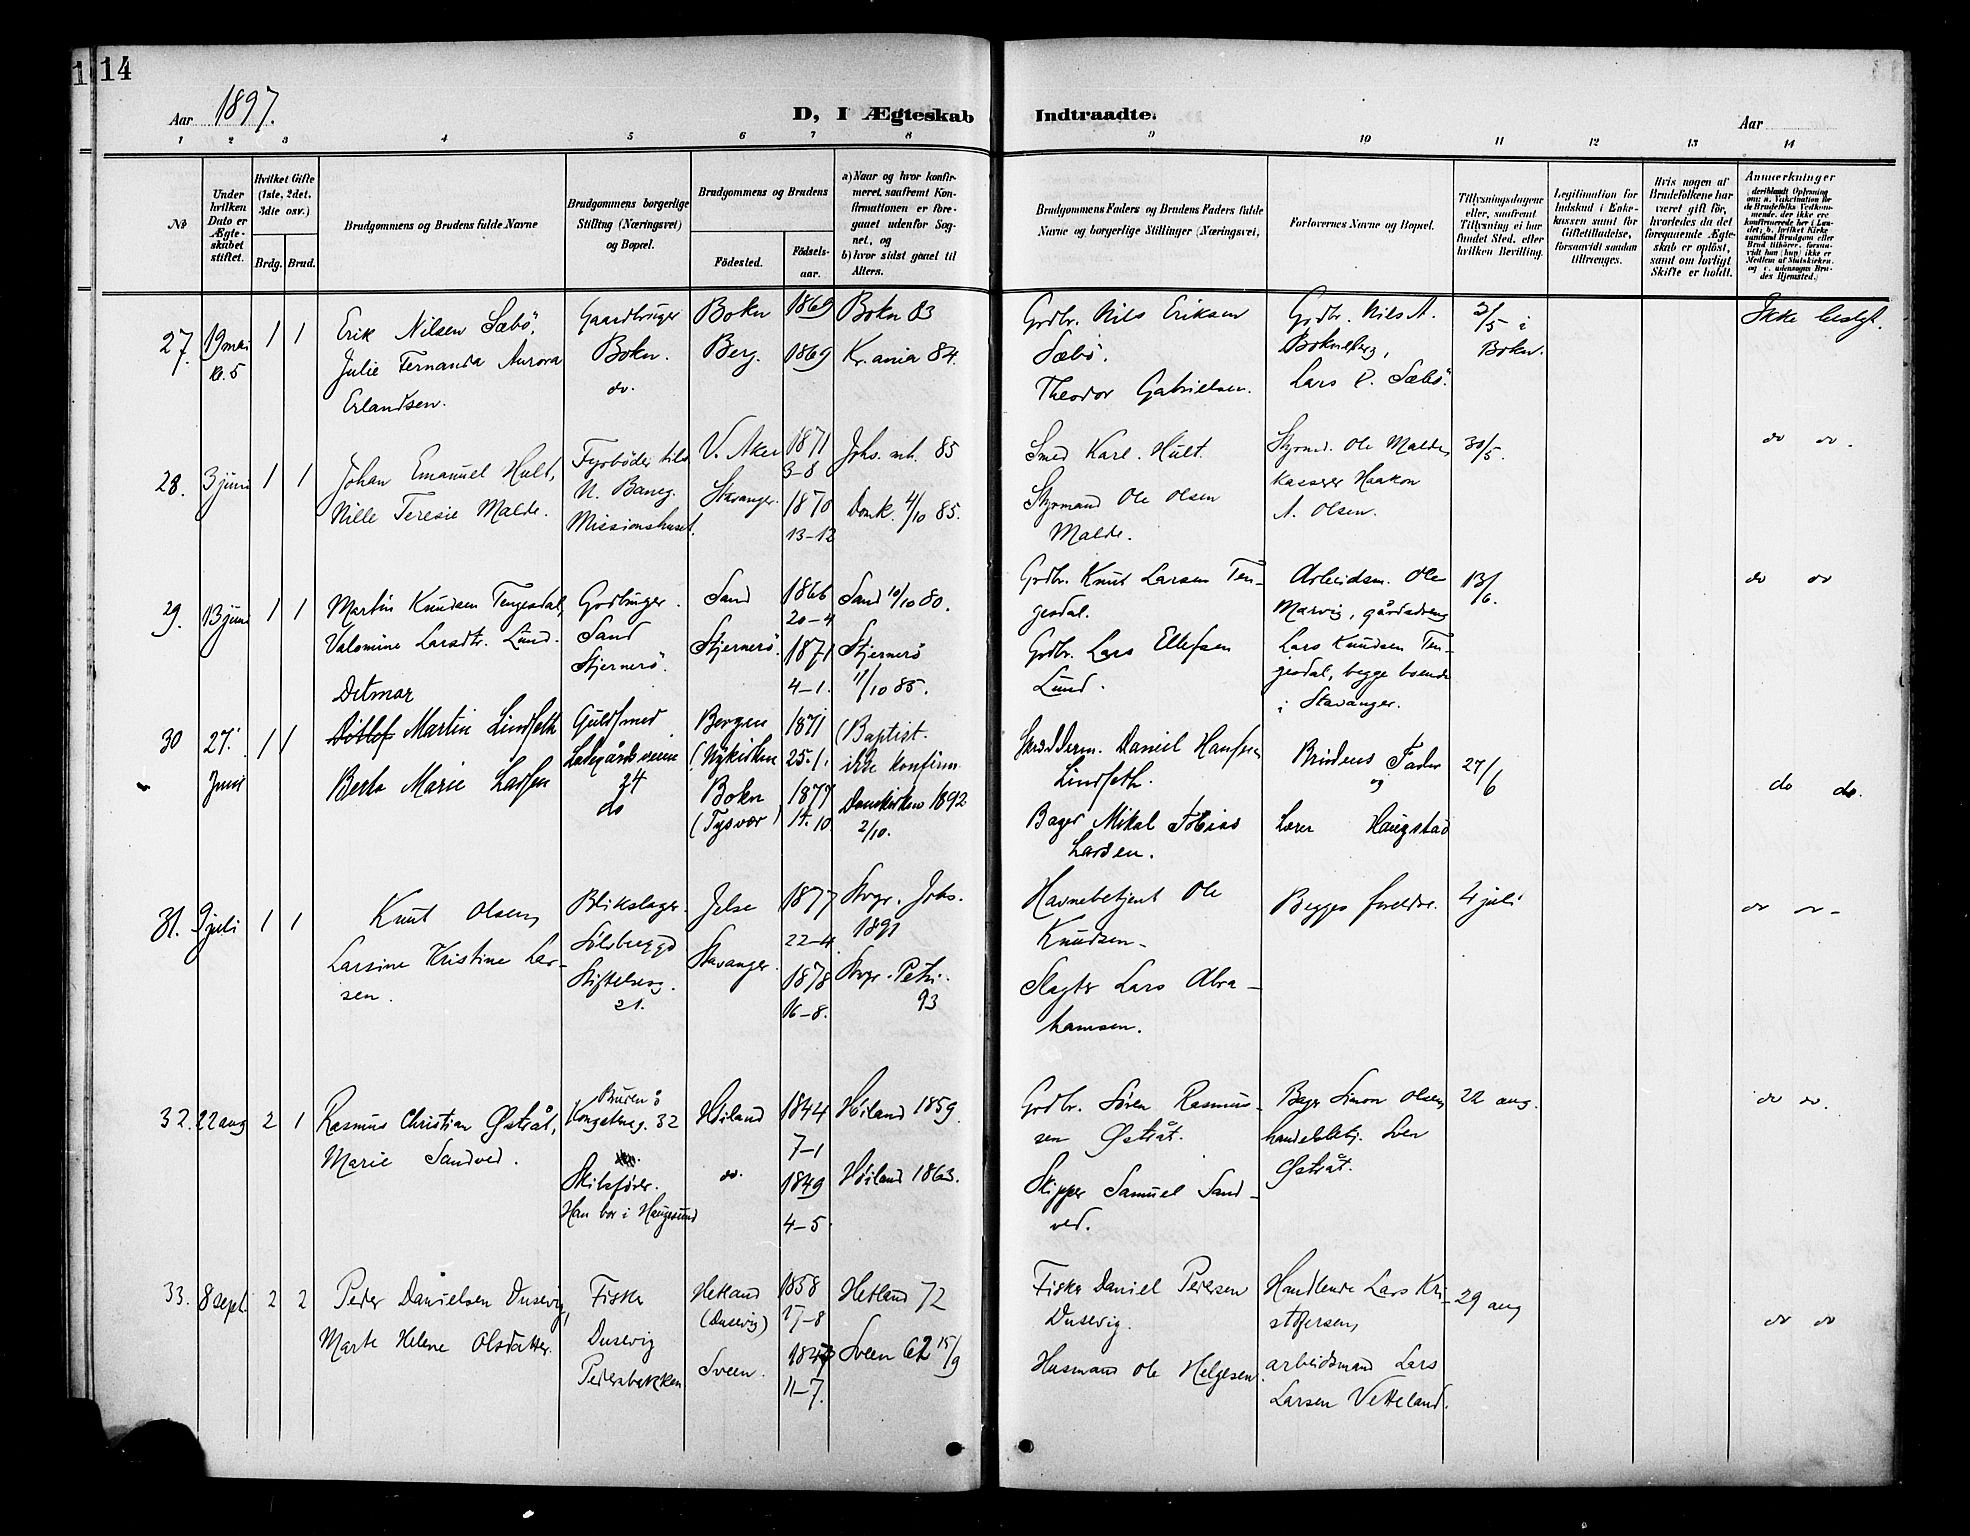 14
Aar 1897.
D, I Ægteskab Indtraadte.
Aar
1 2 3 4 5 6 7 8 9 10 11 12 13 14
No
Under hvilken Dato er Ægteskabet stiftet.
Hvilket Gifte (1ste, 2det, 3die osv.)
Brdg. Brud.
Brudgommens og Brudens fulde Navne
Brudgommens borgerlige Stilling (Næringsvei) og Bopæl.
Brudgommens og Brudens
Fødested.
Fødselsaar.
a) Naar og hvor konfirmeret, saafremt Konfirmationen er foregaaet udenfor Sognet, og
b) hvor sidst gaaet til Alters.
Brudgommens Faders og Brudens Faders fulde Navne og borgerlige Stillinger (Næringsvei,
Forlovernes Navne og Bopæl.
Tillysningsdagene eller, saafremt Tillysning ei har fundet Sted, efter hvilken Bevilling.
Legitimation for Indskud i Enkekassen samt for Giftetilladelse, forsaavidt saadan tiltrænges.
Hvis nogen af Brudefolkene har været gift før, hvorledes da det foregaaende Ægteskab er opløst, samt om lovligt Skifte er holdt.
Anmærkninger
27. 19 mai kl. 5 1 1
Erik Nilsen Sæbö,
Julie Fernanda Aurora
Erlandsen.
Gaardbruger
Bokn.
do.
Bokn
Berg.
1869
1869
Bokn 83
Kr.ania 84.
Grdbr. Nils Eriksen
Sæbö.
Theodor Gabrielsen.
Grdbr. Nils A.
Bokneberg,
Lars E. Sæbö.
3/5 i
Bokn.
Ikke beslgt.
28. 3 juni 1 1
Johan Emanuel Hult,
Nille Teresie Malde.
Fyrböder tils
N. Baneg.
Missionshuset.
V. Aker
Stavanger.
1871
3-8
1870
13-12
Johs. mh. 85
Domk. 4/10 85.
Smed Karl Hult.
Styrmand Ole Olsen
Malde.
Styrmd. Ole Malde,
Kasserer Haakon
A. Olsen.
30/5.
do do.
29. 13 juni 1 1
Martin Knudsen Tengesdal,
Valomine Larsdtr. Lund.
Grdbruger.
Sand
Stjernerö.
Sand
Stjernerö.
1866
20-4
1871
4-1.
Sand 10/10 80.
Stjernerö
11/10 85.
Grdbr. Knut Larsen Ten-
gesdal.
Grdbr. Lars Ellefsen
Lund.
Arbeidsm. Ole
Marvig, gårdsdreng
Lars Knudsen Ten-
gesdal, begge boende
i Stavanger.
13/6.
do do
30 27. Juni 1 1
Detmar
Ditlof Martin Lindseth
Berta Marie Larsen
Guldsmed
Ladegårdsveien
24
do
Bergen
(Nykirken
Bokn
(Tysvær)
1871
25.1.
1877
14.10
(Baptist.
ikke konfirm
Domkirken 1892
2/10.
Skrædderm. Daniel Hansen
Lindseth.
Bager Mikal Tobias
Larsen.
Brudens Fader
og
Lærer Haugstad
27/6
do do.
31. 9 juli 1 1
Knut Olsen,
Larsine Kristine Lar-
sen.
Blikslager.
Sölvberggd
Stiftelsesg.
21.
Jelse
Stavanger.
1877
22-4
1878
16-8.
Stvgr. Johs.
1891
Stvgr. Petri.
93
Havnebetjent Ole
Knudsen-
Slagter Lars Abra-
hamsen.
Begges foreldre.
4 juli
do do-
32. 22 aug 2 1
Rasmus Christian Østråt,
Marie Sandved.
Bruden:
Kongsteng. 32
Skibsfører.
Han bor i Haugesund
Høiland
do.
1844
7-1
1849
4-5
Høiland 1859.
Høiland 1863.
Grdbr. Sören Rasmus-
sen Østråt.
Skipper Samuel Sand-
ved.
Bager Simon Olsen,
handelsbetj. Sven
Østråt.
22 aug.
do do.
33. 8 sept. 2 2
Peder Danielsen Dusevig,
Marte Helene Olsdatter.
Fisker
Dusevig
Pedersbakken
Hetland
(Dusevig)
Sveen.
1858
17-8
1847
11-7.
Hetland 72
Sveen 62 15/9
Fisker Daniel Pedersen
Dusevig.
Husmand Ole Helgesen.
Handlende Lars Kri-
stofersen,
arbeidsmand Lars
Larsen Vetteland.
29 aug
do do